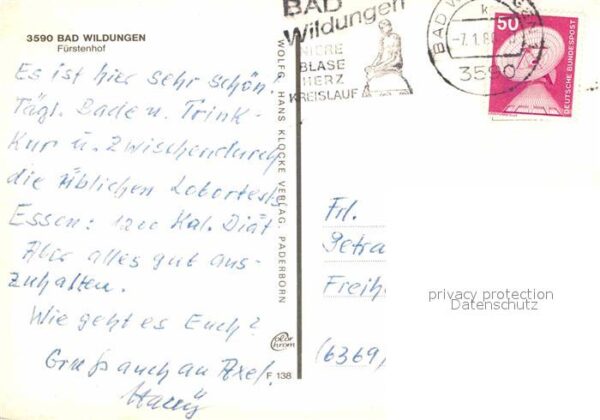 3590 BAD WILDUNGEN
Fürstenhof
Es ist hier sehr schön!
Tägl. Bade u. Trink-
Kur u. Zwischendurch
die üblichen Labortests
Essen: 1200 Kal. Diät
Aber alles gut aus-
zuhalten.
Wie geht es Euch?
Gruß auch an Axel.
WOLFG. HANS KLOCKE VERLAG, PADERBORN
color
chrom
F 138
BAD
Wildungen
NIERE
BLASE
HERZ
KREISLAUF
BAD WILDUNGEN
k
-7.1.8
3590
50
DEUTSCHE BUNDESPOST
Frl.
Petra
Freih
(6369)
privacy protection
Datenschutz